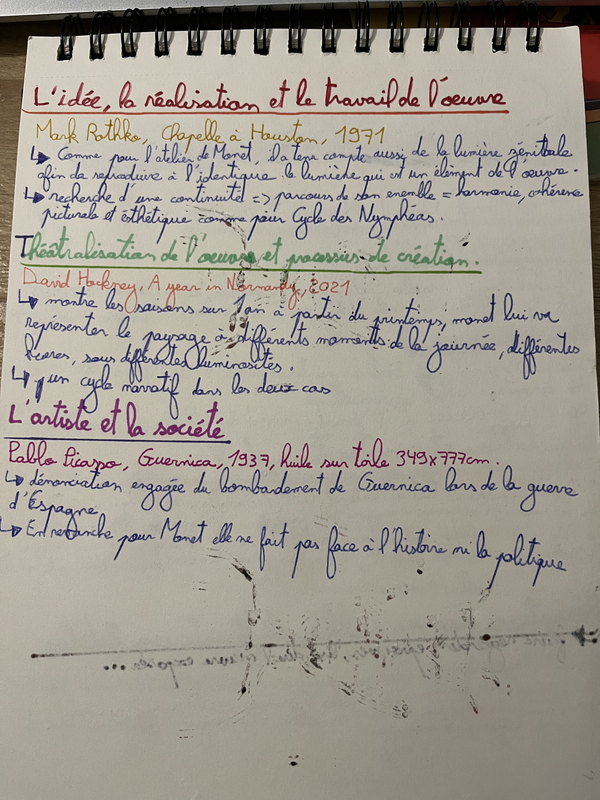 L'idée, la réalisation et le travail de l'oeuvre
Mark Rothko, Chapelle à Houston, 1971
↳ Comme pour l'atelier de Monet, il a tenu compte aussi de la lumière zénithale
afin de reproduire à l'identique la lumière qui est un élément de l'oeuvre.
↳ recherche d'une continuité => parcours de son ensemble = harmonie, cohérence
picturale et esthétique comme pour Cycle des Nymphéas.
Théâtralisation de l'oeuvre et processus de création.
David Hockney, A year in Normandy, 2021
↳ montre les saisons sur 1 an à partir du printemps, monet lui va
représenter le paysage à différents moments de la journée, différentes
heures, sous différentes luminosités.
↳ un cycle narratif dans les deux cas
L'artiste et la société
Pablo Picasso, Guernica, 1937, huile sur toile 349x777cm.
↳ dénonciation engagée du bombardement de Guernica lors de la guerre
d'Espagne
↳ En revanche pour Monet elle ne fait pas face à l'histoire ni la politique